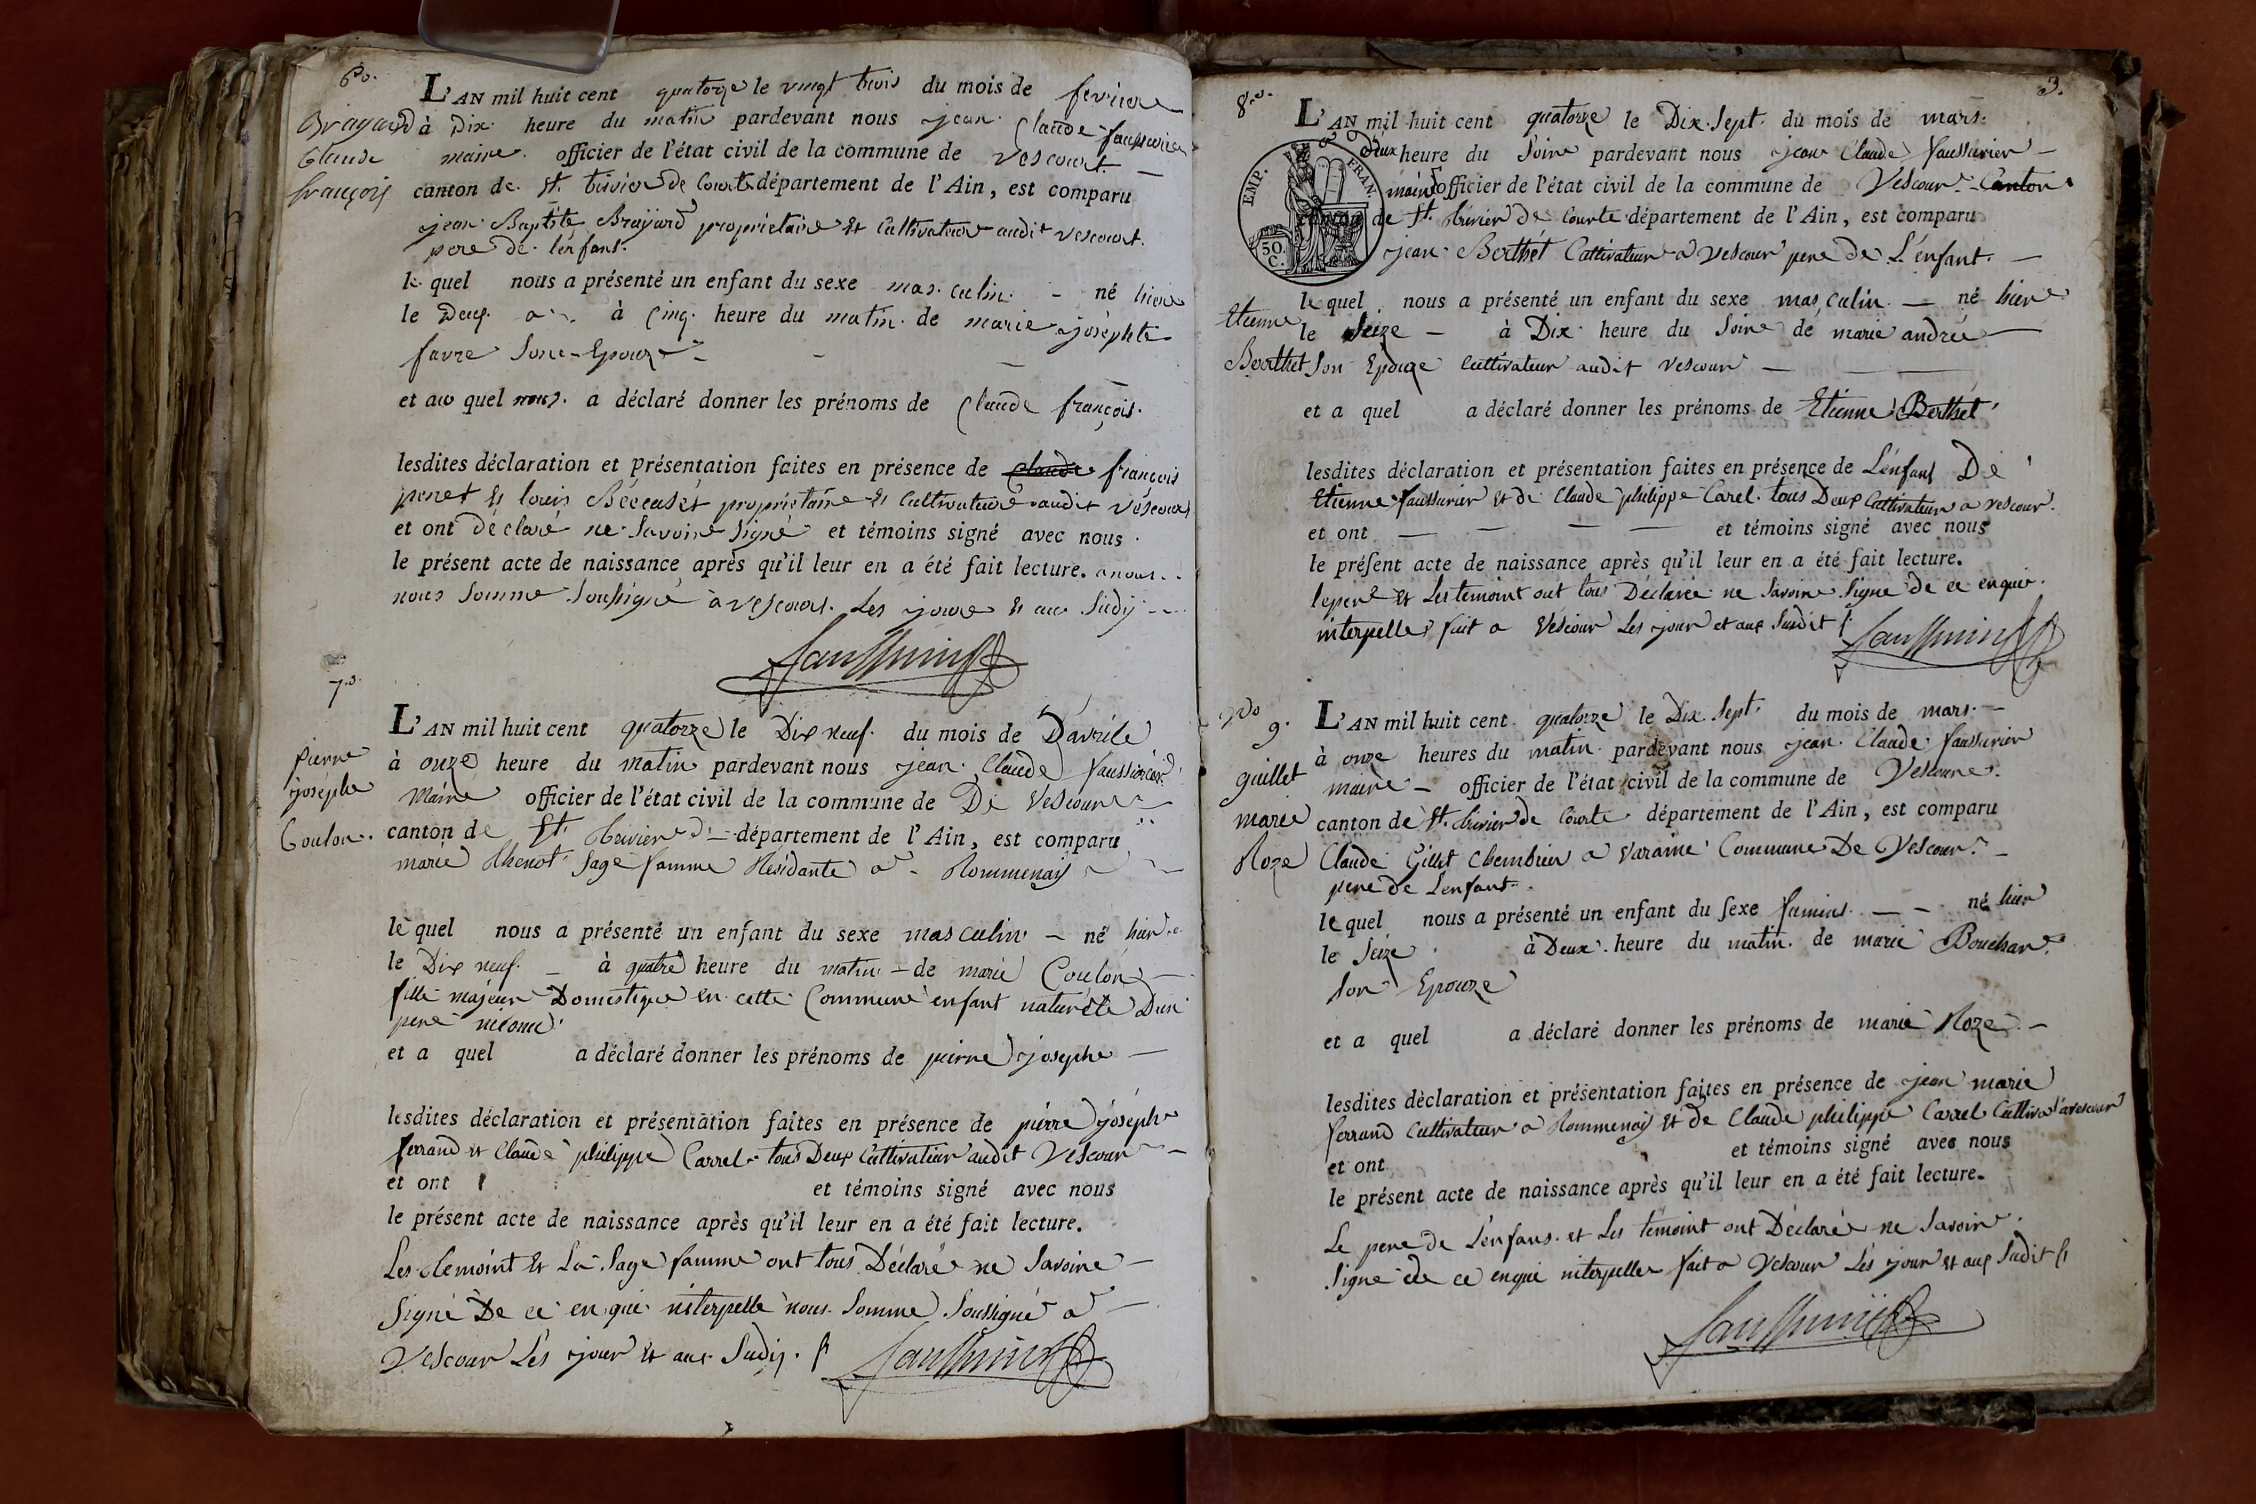 6º.
Brayard
Claude
françois
L'AN mil huit cent quatorze le vingt trois du mois de fevriere
à Dix heure du matin pardevant nous jean Claude faussurier
maire officier de l'état civil de la commune de vescourt.
canton de St. trivier de Courte département de l'Ain, est comparu
jean Baptiste Brayard proprietaire et Cultivateur audit vescourt.
pere de lenfant.
le quel nous a présenté un enfant du sexe masculin né hiere
le à Cinq heure du matin de marie josephte
favre Epouze
et au quel nous a déclaré donner les prénoms de Claude françois.
lesdites déclaration et présentation faites en présence de Claude françois
perret et louis proprietaire et Cultivateur audit vescour
et ont déclaré ne Savoire Signé et témoins signé avec nous
le présent acte de naissance après qu'il leur en a été fait lecture.
nous Somme Soussigné a vescour. Les joure et an Sudij
7º.
pierre
joséphe
Coulon.
L'AN mil huit cent quatorze le Dix neuf. du mois de D'avrile
à onze heure du matin pardevant nous jean Claude
Maire officier de l'état civil de la commune de De Vescour
canton de St. trivier département de l'Ain, est comparu
marie Sage famme Résidante a Rommenay
le quel nous a présenté un enfant du sexe masculin né hier
le Dix neuf. à quatre heure du matin de marie Coulon
fille majeur Domestique en cette Commune enfant naturéle Dun
pere
et a quel a déclaré donner les prénoms de pierre josephe
lesdites déclaration et présentation faites en présence de pierre joséphe
ferrand et Claude philippe Carrel tous Deux Cultivateur audit Vescour
et ont et témoins signé avec nous
le présent acte de naissance après qu'il leur en a été fait lecture.
Les temoint et La Sage famme ont tous Déclaré ne Savoire
Signé De ce en qui interpelle nous Somme Soussigné a
Vescour Les jour et an Sudij.
3.
8º.
Etienne
Berthet
EMP. FRAN.
50
C.
L'AN mil huit cent quatorze le Dix Sept du mois de mars
Deux heure du Soire pardevant nous jean Claude faussurier
maire officier de l'état civil de la commune de Vescour Canton
canton de St. trivier de Courte département de l'Ain, est comparu
jean Berthet Cultivateur a Vescour pere de L'enfant.
le quel nous a présenté un enfant du sexe masculin né hiere
le Seize à Dix heure du Soire de marie andrée
Son Epouze cultivateur audit vescour
et a quel a déclaré donner les prénoms de Etienne Berthet
lesdites déclaration et présentation faites en présence de L'enfant De
Etienne faussurier et de Claude philippe Carel tous Deux Cultivateur a vescour.
et ont et témoins signé avec nous
le présent acte de naissance après qu'il leur en a été fait lecture.
lepere et Les temoint ont tous Déclaree ne Savoire Signe de ce enquie
interpelle fait a Vescour Les jour et an Susdit
Nº
9.
guillet
marie
Roze
L'AN mil huit cent quatorze le Dix Sept du mois de mars
à onze heures du matin pardevant nous jean Claude faussurier
maire officier de l'état civil de la commune de Vescoure
canton de St. trivier de Courte département de l'Ain, est comparu
Claude Gillet a Varaine Commune De Vescour
pere de Lenfant.
le quel nous a présenté un enfant du sexe né hier
le Seize à Deux heure du matin de marie Bouchar
Son Epouze
et a quel a déclaré donner les prénoms de marie Roze
lesdites déclaration et présentation faites en présence de jean marie
ferrand Cultivateur a Rommenay et de Claude philippe Carrel
et ont et témoins signé avec nous
le présent acte de naissance après qu'il leur en a été fait lecture.
Le pere de Lenfans et Les témoint ont Déclaré ne Savoire
Signe de ce enqui interpelle fait a Vescour Les jour et an Sudit